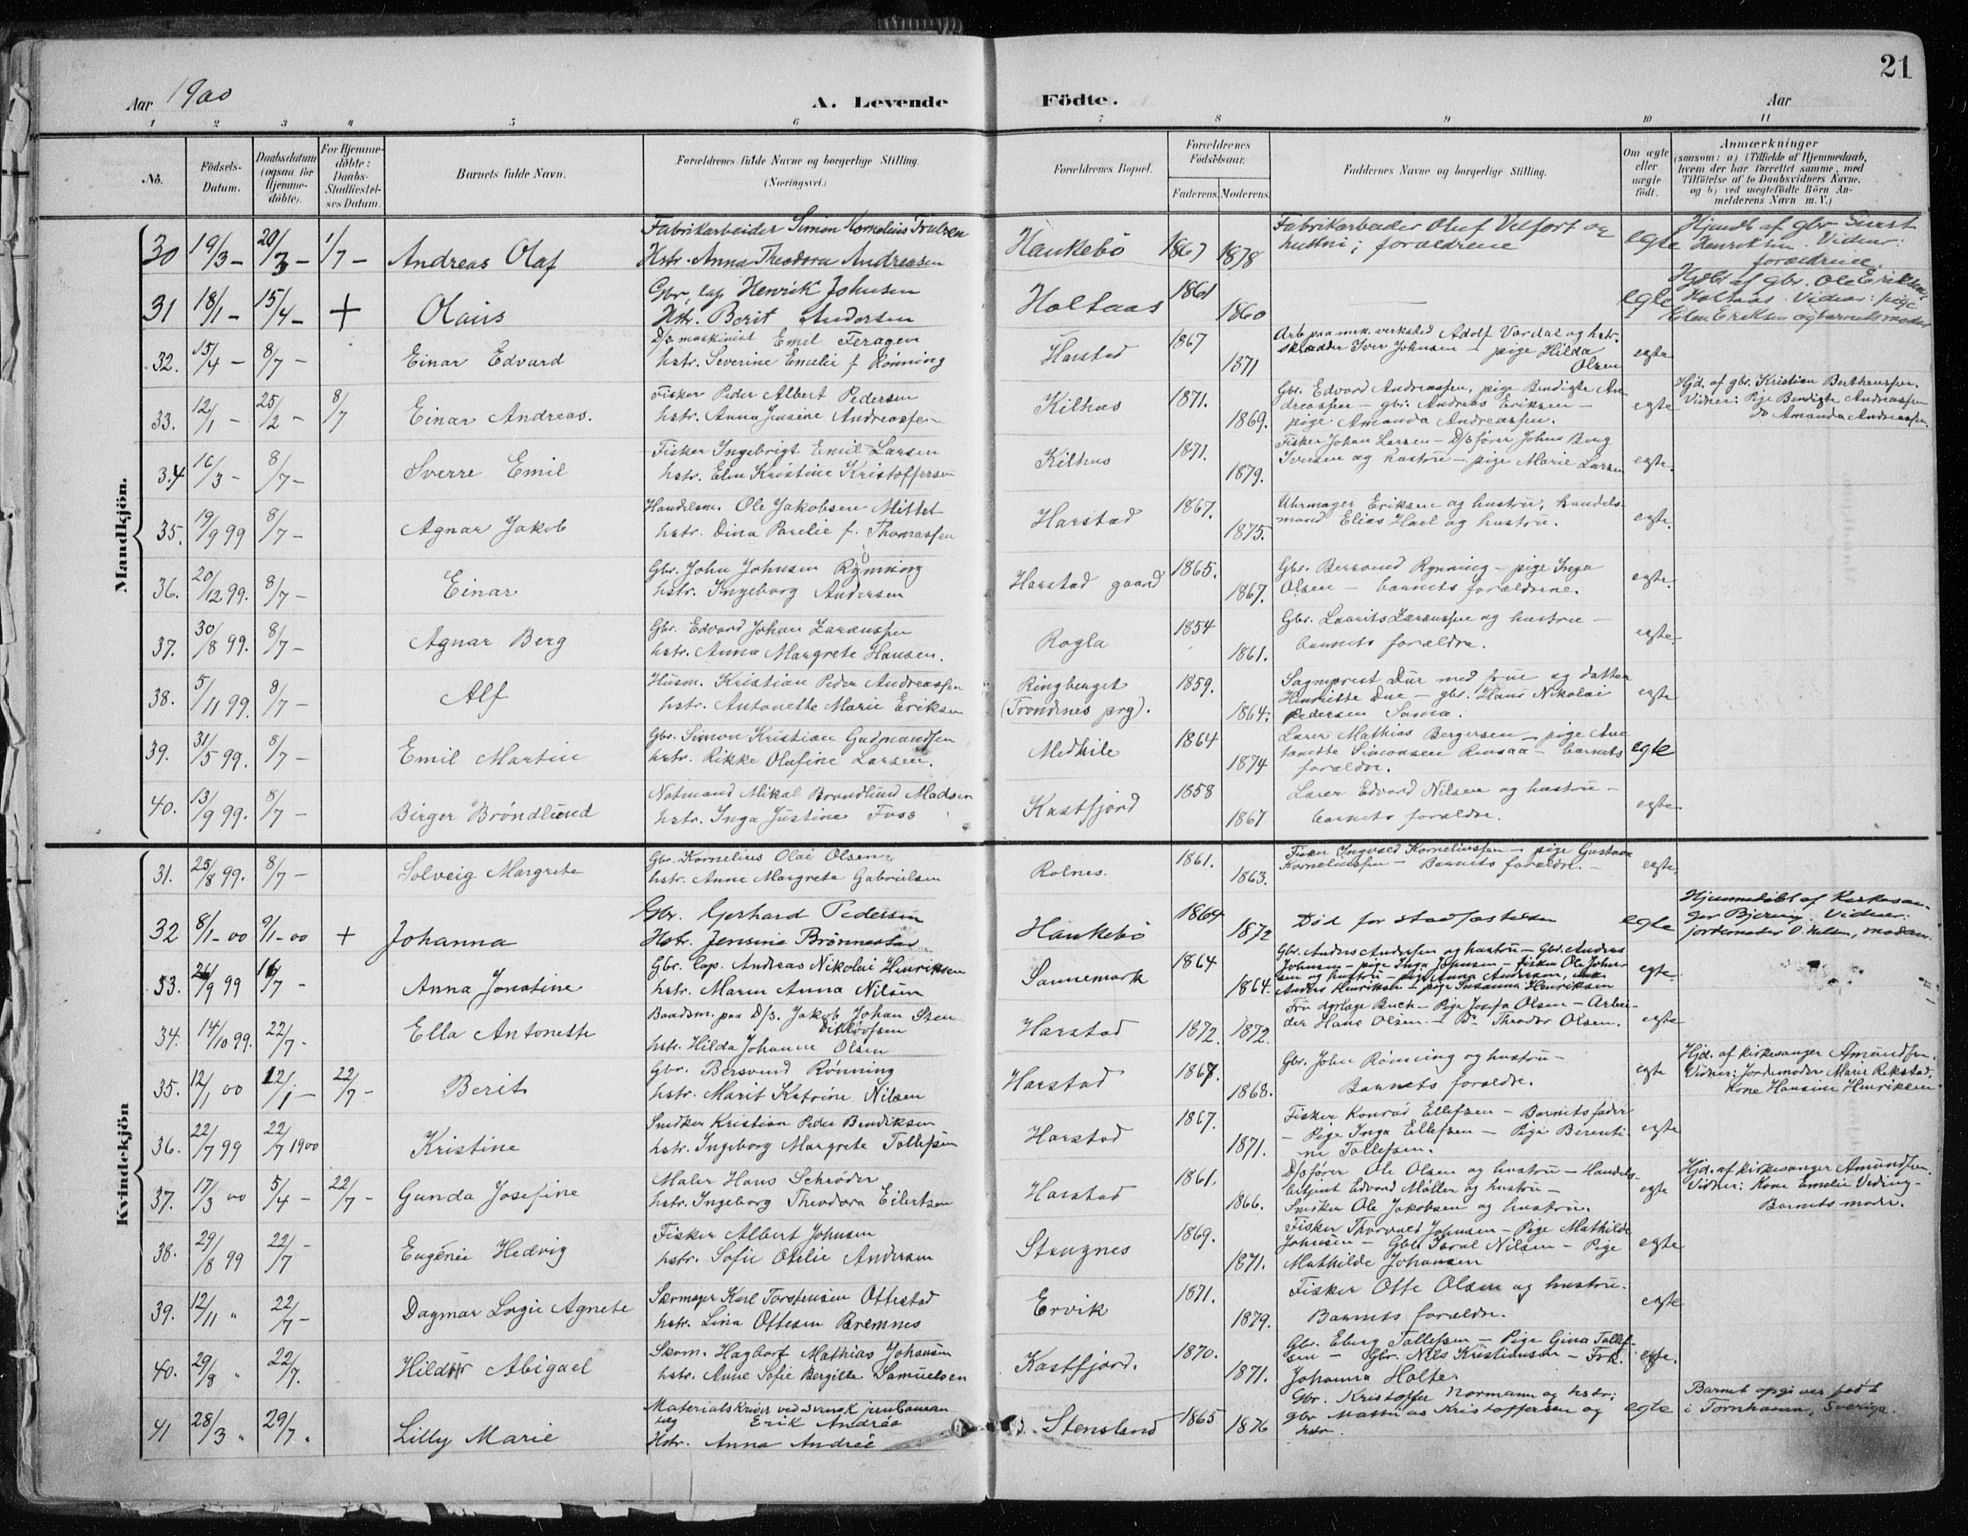 21
Aar 1900 A. Levende Födte. Aar
1 2 3 4 5 6 7 8 9 10 11
No. Födsels-Datum. Daabsdatum (ogsaa for Hjemme-döbte). For Hjemme-döbte: Daabs-Stadfæstel-ses Datum. Barnets fulde Navn. Forældrenes fulde Navne og borgerlige Stilling. (Næringsvei.) Forældrenes Bopæl. Forældrenes Födselsaar. Faderens. Moderens. Faddernes Navne og borgerlige Stilling. Om ægte eller uægte födt. Anmærkninger (saasom: a) i Tilfælde af Hjemmedaab, hvem der har forrettet samme, med Tilföielse af to Daabsvidners Navne, og b) ved uegtefödte Börn Anmelderens Navn m. V.)
Mandkjön.
30 19/3 - 20/3 - 1/7 - Andreas Olaf
Fabrikarbeider Simon Kornelius
Hstr. Anna Theodora Andreasen
Haukebö 1867 1878
Fabrikarbeider Oluf og
hustru; forældrene
egte
31 18/1 - 15/4 - + Olaus
Gbr. Henrik Johnsen
Hstr. Berit Andersen
Holtaas 1861 1860
egte
Hjdbt af gbr. Ole Eriksen
Holtaas. Vidner: pige
Elen Eriksen og barnets moder
32. 15/4 - 8/7 - Einar Edvard
D/s maskinist Emil Feragen
hstr. Severine Emelie f Rønning
Harstad 1867 1871
Arb. paa mek. verksted Adolf Vardal og hstr.
skrædder Iver Johnsen - pige Hilda
Olsen
egte
33. 12/1 - 25/2 - 8/7 Einar Andreas.
Fisker Peder Albert Pedersen
hstr. Anna Jusine Andreassen
Kilhus 1871. 1869.
Gbr. Edvard Andreassen, pige Bendigte An-
dreassen - gbr. Andreas Eriksen -
pige Amanda Andreassen.
egte
Hjd. af gbr. Kristian Berthensen.
Vidner: Pige Bendigte Andreassen
do Amanda Andreassen.
34 16/3 - 8/7 - Sverre Emil
Fisker Ingebrigt Emil Larsen
hstr. Elen Kristine Kristoffersen
Kilhus 1871. 1879.
Fisker Johan Larsen - D/sfører Johns Berg
Iversen og hustru - pige Marie Larsen
egte.
35. 19/9 99 8/7 - Agnar Jakob
Handelsm. Ole Jakobsen Mittet
hstr. Dina Parelie f. Thomassen
Harstad 1867. 1875.
Uhrmager Eriksen og hustru, handels-
mand Elias Hael og hustru.
egte.
36. 20/12 99. 8/7 - Einar
Gbr. John Johnsen Rønning
hstr. Ingeborg Andersen
Harstad gaard 1865. 1867.
Gbr. Bersvend Rynning - pige Inga
Olsen - barnets forældrene.
egte.
37. 30/8 99. 8/7 - Agnar Berg
Gbr. Edvard Johan Zarausen
hstr. Anna Margrete Hansen.
Rogla 1854 1861.
Gbr. Laurits og hustru -
barnets forældre.
egte.
38. 5/11 99. 8/7 - Alf
Husm. Kristian Peder Andreassen
hstr. Antonette Marie Eriksen
Ringberget
(Trondenes prg). 1859. 1864.
Sogneprest Due med frue og datter
Henriette Due - gbr. Hans Nikolai
Pedersen Sama.
egte
39. 31/5 99. 8/7 - Emil Martin
Gbr. Simon Kristian Gudmundsen
hstr. Rikke Olufine Larsen.
Medkile 1864 1874
Lærer Mathias Bergersen - pige
Simonsen - barnets
forældre.
egte
40. 13/9 99. 8/7 - Birger Brøndlund
Notmand Mikal Brøndlund Madsen
hstr. Inga Justine
Kastfjord 1858 1867
Lærer Edvard Nilsen og hustru -
barnets forældre.
egte.
Kvindekjön
31. 25/8 99. 8/7 - Solveig Margrete
Gbr. Kornelius Olai Olsen
hstr. Anne Margrete Gabrielsen
Rolnes. 1861. 1863.
Fisker Ingvald Korneliussen - pige Gustava
Korneliussen - Barnets forældre. -
egte.
32 8/1-00 9/1-00 + Johanna
Gbr. Gerhard Pedersen
Hstr. Jensine Brønnestad
Haukebö 1864 1872
Død før stadfæstelsen
egte
Hjemmedöbt af Kirkesan-
ger Bjering. Vidner:
jordemoder O. Nilsen, moderen.
33. 26/9 99 16/7 - Anna Jonatine
Gbr. Andreas Nikolai Henriksen
hstr. Maren Anna Nilsen
Sannemark 1864 1864.
Gbr. Anders Andersen og hustru - Gbr. Anders
Johnsen - pige Inga Johnsen - fisker Ole Johan-
sen og hustru - pige Anna Andersen,
Anders Henriksen - pige Susanna Henriksen
egte.
34. 14/10 99. 22/7 - Ella Antonette
Baadsm. paa D/s. Jakob Johan Sten
Ditløvsen
hstr. Hilda Johanne Olsen
Harstad 1872. 1872.
Fru dyrlæge Buch - Pige Josefa Olsen - Arbei-
der Hans Olsen - Do Theodor Olsen.
egte
35. 12/1 00 12/1 - 22/7 - Berit
Gbr. Bersvend Rønning
hstr. Marit Katrine Nilsen
Harstad 1867. 1868.
Gbr. John Rønning og hustru -
Barnets forældre.
egte
Hjd. af kirkesanger Amundsen.
Vidner: Jordemoder Marie Rekstad,
Kone Hansine Henriksen
36. 22/7 99 22/7 1900 Kristine
Snedker Kristian Peder Bendiksen
hstr. Ingeborg Margrete Tollefsen
Harstad 1867. 1871.
Fisker Konrad Ellefsen - Barnets fader
- Pige Inga Ellefsen - Pige Birenti-
ne Tollefsen.
egte
37. 17/3 00 5/4 - 22/7 - Gunda Josefine
Maler Hans Schrøder
hstr. Ingeborg Theodora Eilertsen
Harstad 1861. 1866.
D/sfører Ole Olsen og hustru - Handels-
betjent Edvard Møller og hustru -
Snedker Ole Jakobsen og hustru.
egte
Hjd. af kirkesanger Amundsen.
Vidner: Kone Emelie Veding -
Barnets moder.
38. 29/8 99 22/7 - Eugenie Hedvig
Fisker Albert Johnsen
hstr. Sofie Otelie Andersen
Stangnes 1869. 1871.
Fisker Thorvald Johnsen - Pige Mathilde
Johnsen - Gbr. Nilsen - Pige
Mathilde Johansen
egte
39. 12/11 " 22/7 - Dagmar Agnete
Skrmager Karl Torstensen Ottestad
hstr. Lina Ottesen Bremnes
Ervik 1871. 1879.
Fisker Otte Olsen og hustru.
Barnets forældre.
egte
40. 29/8 " 22/7. Hildur Abigael
Skom. Hagborf Mathias Johansen
hstr. Anne Sofie Bergitte Samuelsen
Kastfjord. 1870. 1871.
Gbr. Eberg Tollefsen - Pige Gina Tollef-
sen - Gbr. Nils Kristiansen - Frk.
Johanna Holter
egte.
41 28/3 " 29/7 " Lilly Marie
Materialskriver ved svensk jernbanean-
læg Erik Andrée
Hstr. Anna Andrée
Stensland 1865 1876
Gbr. Kristoffer Normann og hstr;
gbr Mathias Kristoffersen og
hstr.
egte
Barnet opgives født
i Tornhamn, Sverige.